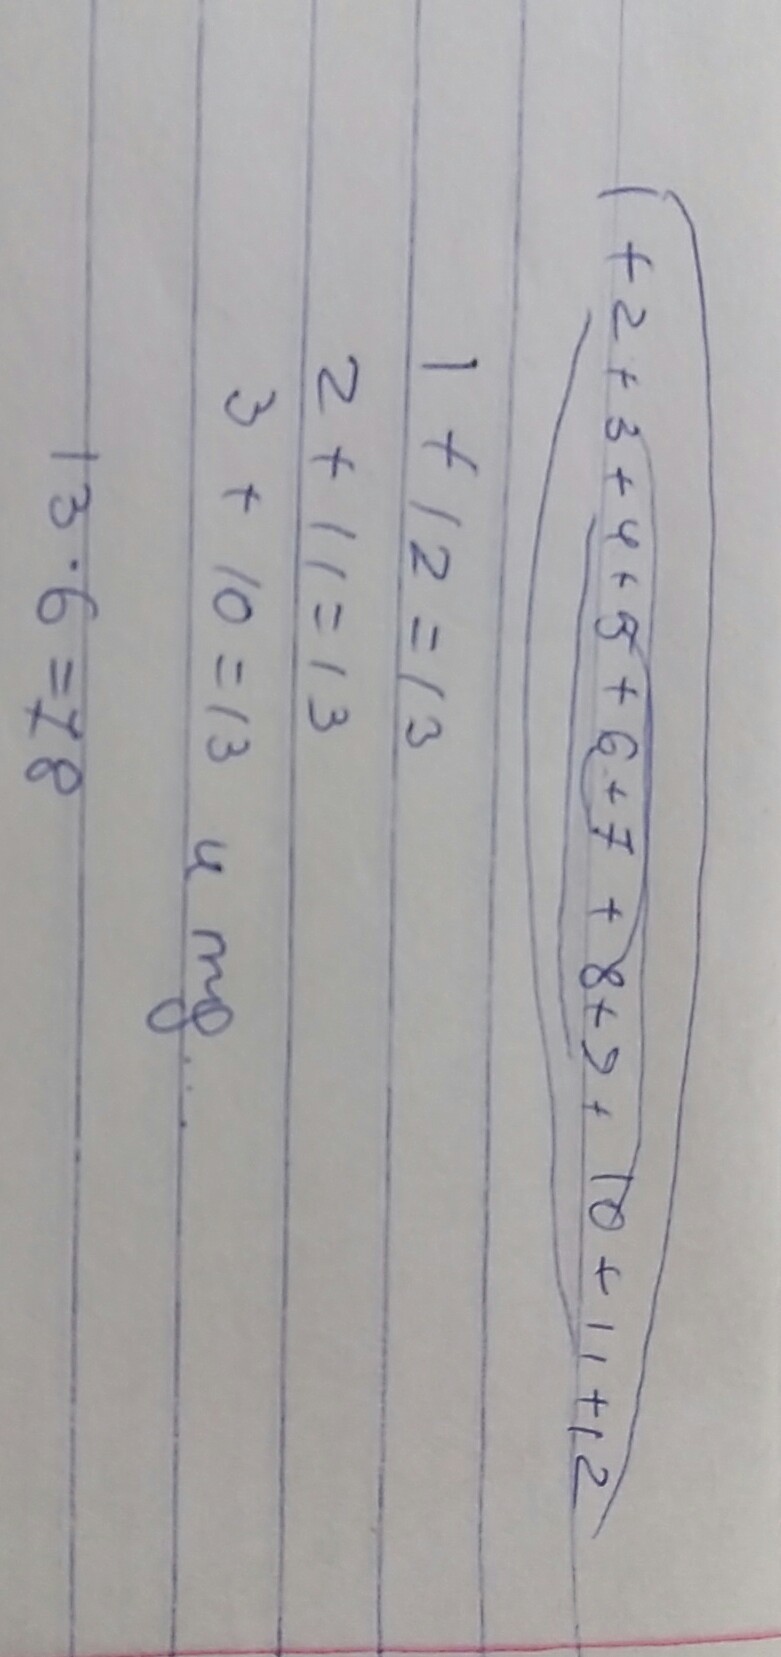 1 + 2 + 3 + 4 + 5 + 6 + 7 + 8 + 9 + 10 + 11 + 12
1 + 12 = 13
2 + 11 = 13
3 + 10 = 13 и тд...
13 · 6 = 78